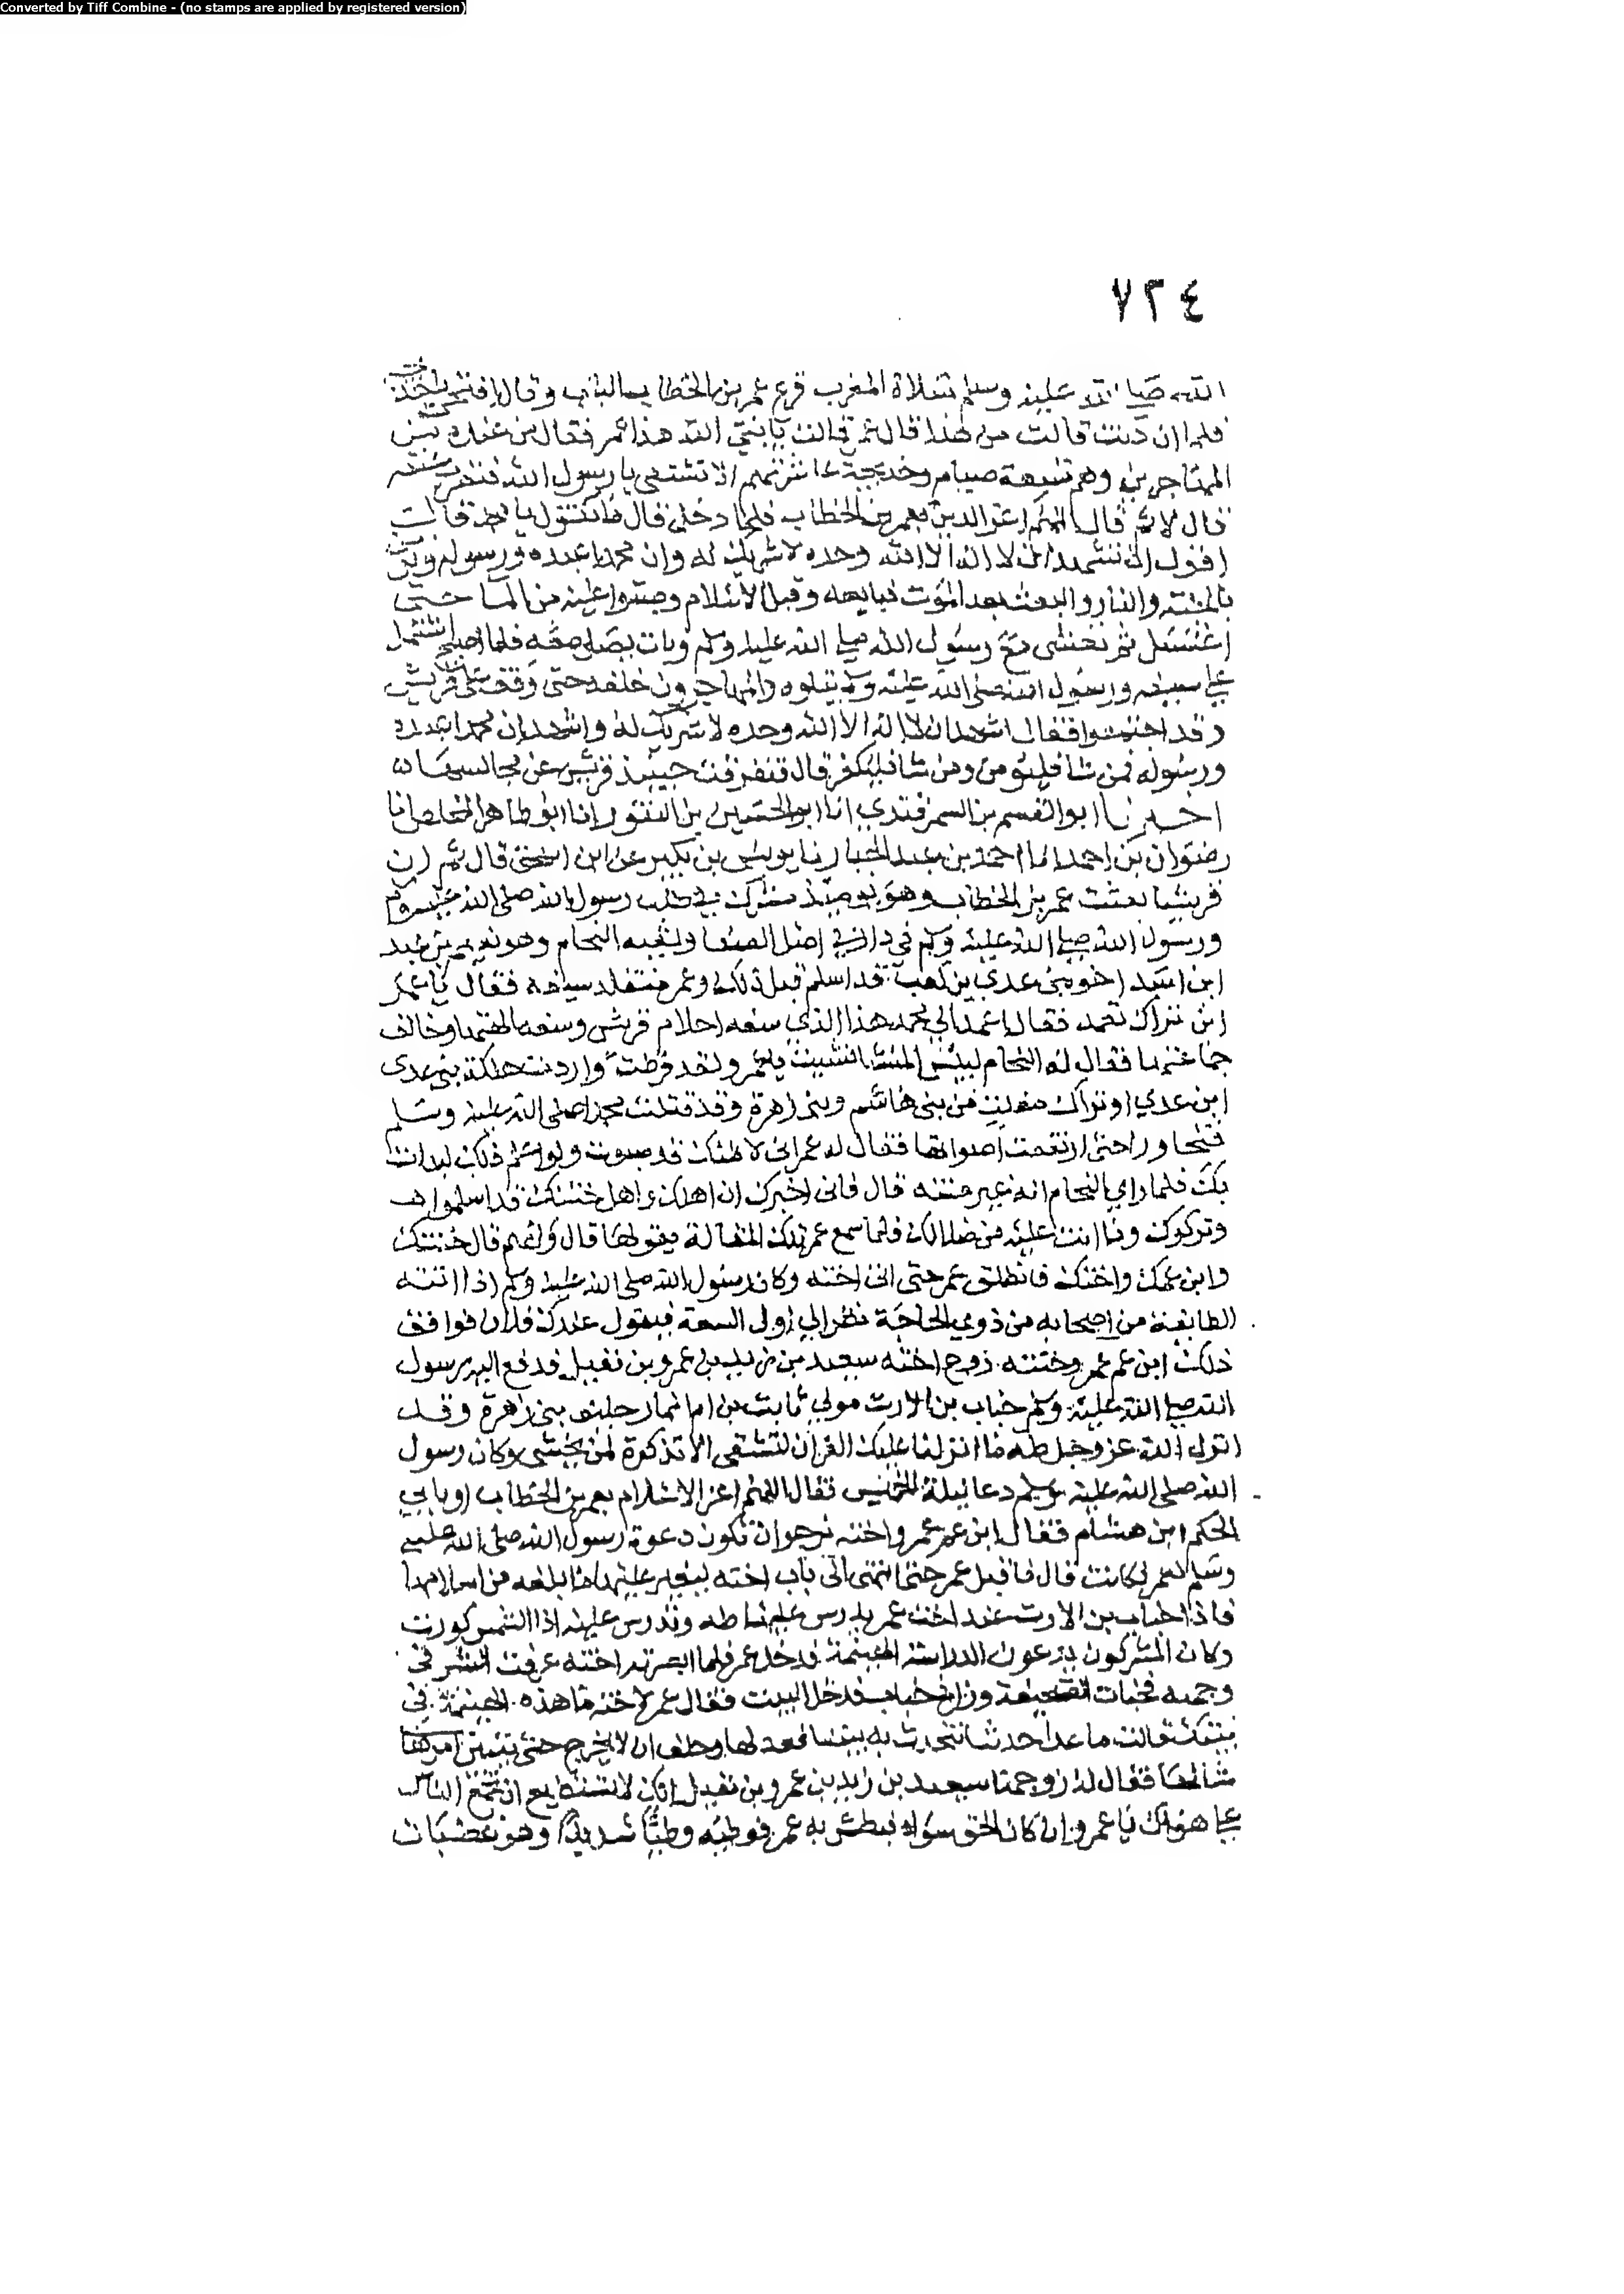 Converted by Tiff Combine - (no stamps are applied by registered version)
٧٢٤
الله صلى الله عليه وسلم صلاة المغرب قرع عمر بن الخطاب الباب وقال افتحي يا خديجة
فلما ان دنت قالت من هذا قال عمر قالت يا نبي الله هذا عمر فقال من عنده من
المهاجرين وهم تسعة صيام وخديجة عاشرتهم الا تشتفي يا رسول الله فنضرب عنقه
قال لا ثم قال اللهم اعز الدين بعمر بن الخطاب فلما دخل قال ما تقول يا محمد قال
اقول ان تشهد ان لا اله الا الله وحده لا شريك له وان محمدا عبده ورسوله وتؤمن
بالجنة والنار والبعث بعد الموت فبايعه وقبل الاسلام وصبوا عليه من الماء حتى
اغتسل ثم تعشى مع رسول الله صلى الله عليه وسلم وبات يصلي معه فلما اصبح اشتمل
على سيفه ورسول الله صلى الله عليه وسلم يتلوه والمهاجرون خلفه حتى وقف على قريش
وقد اجتمعوا فقال اشهد ان لا اله الا الله وحده لا شريك له واشهد ان محمدا عبده
ورسوله فمن شا فليؤمن ومن شا فليكفر قال فتفرقت حينئذ قريش عن مجالسها
اخبرنا ابو القسم بن السمرقندي انا ابو الحسين بن النقور انا ابو طاهر المخلص انا
رضوان بن احمد انا احمد بن عبد الجبار نا يونس بن بكير عن ابن اسحق قال ثم ان
قريشا بعثت عمر بن الخطاب وهو يومئذ مشرك في طلب رسول الله صلى الله عليه وسلم
ورسول الله صلى الله عليه وسلم في دار في اصل الصفا ولقيه النحام وهو نعيم بن عبد
ابن اسيد اخو بني عدي بن كعب قد اسلم قبل ذلك وعمر متقلد سيفه فقال يا عمر
اين تراك تعمد فقال اعمد الى محمد هذا الذي سفه احلام قريش وسفه الهتها وخالف
جماعتها فقال له النحام لبئس الممشا مشيت يا عمر ولقد فرطت واردت هلكة بني عدي
ابن عدي او تراك مفلت من بني هاشم وبني زهرة وقد قتلت محمدا صلى الله عليه وسلم
فتحاورا حتى ارتفعت اصواتهما فقال له عمر اني لاظنك قد صبوت ولو اعلم ذلك لبدات
بك فلما راى النحام انه غير منته قال فاني اخبرك ان اهلك واهل ختنك قد اسلموا
وتركوك وما انت عليه من ضلالك فلما سمع عمر تلك المقالة يقولها قال وايهم قال ختنك
وابن عمك واختك فانطلق عمر حتى اتى اخته وكان رسول الله صلى الله عليه وسلم اذا اتته
الطائفة من اصحابه من ذوي الحاجة نظر الى اولى السعة فيقول عندك فلان فوافق
ذلك ابن عم عمر وختنه زوج اخته سعيد بن زيد بن عمرو بن نفيل فدفع اليه رسول
الله صلى الله عليه وسلم خباب بن الارت مولى ثابت بن ام انمار حليف بني زهرة وقد
انزل الله عز وجل طه ما انزلنا عليك القران لتشقى الا تذكرة لمن يخشى وكان رسول
الله صلى الله عليه وسلم دعا ليلة الخميس فقال اللهم اعز الاسلام بعمر بن الخطاب او بابي
الحكم ابن هشام فقال ابن عم عمر واخته نرجو ان تكون دعوة رسول الله صلى الله عليه
وسلم لعمر فكانت قال فاقبل عمر حتى انتهى الى باب اخته ليغير عليها ما بلغه من اسلامها
فاذا خباب بن الارت عند اخت عمر يدرس عليها طه وتدرس عليه اذا الشمس كورت
وكان المشركون يدعون الدراسة الهينمة فدخل عمر فلما ابصرته اخته عرفت الشر في
وجهه فخبات الصحيفة وراغ خباب فدخل البيت فقال عمر لاخته ما هذه الهينمة في
بيتك قالت ما عدا حديثا نتحدث به بيننا فعد لها وحلف ان لا يخرج حتى يتبين امر
شانها فقال له زوجها سعيد بن زيد بن عمرو بن نفيل انك لا تستطيع ان تجمع الناس
على هواك يا عمر وان كان الحق سواه فبطش به عمر فوطئه وطئا شديدا وهو غضبان